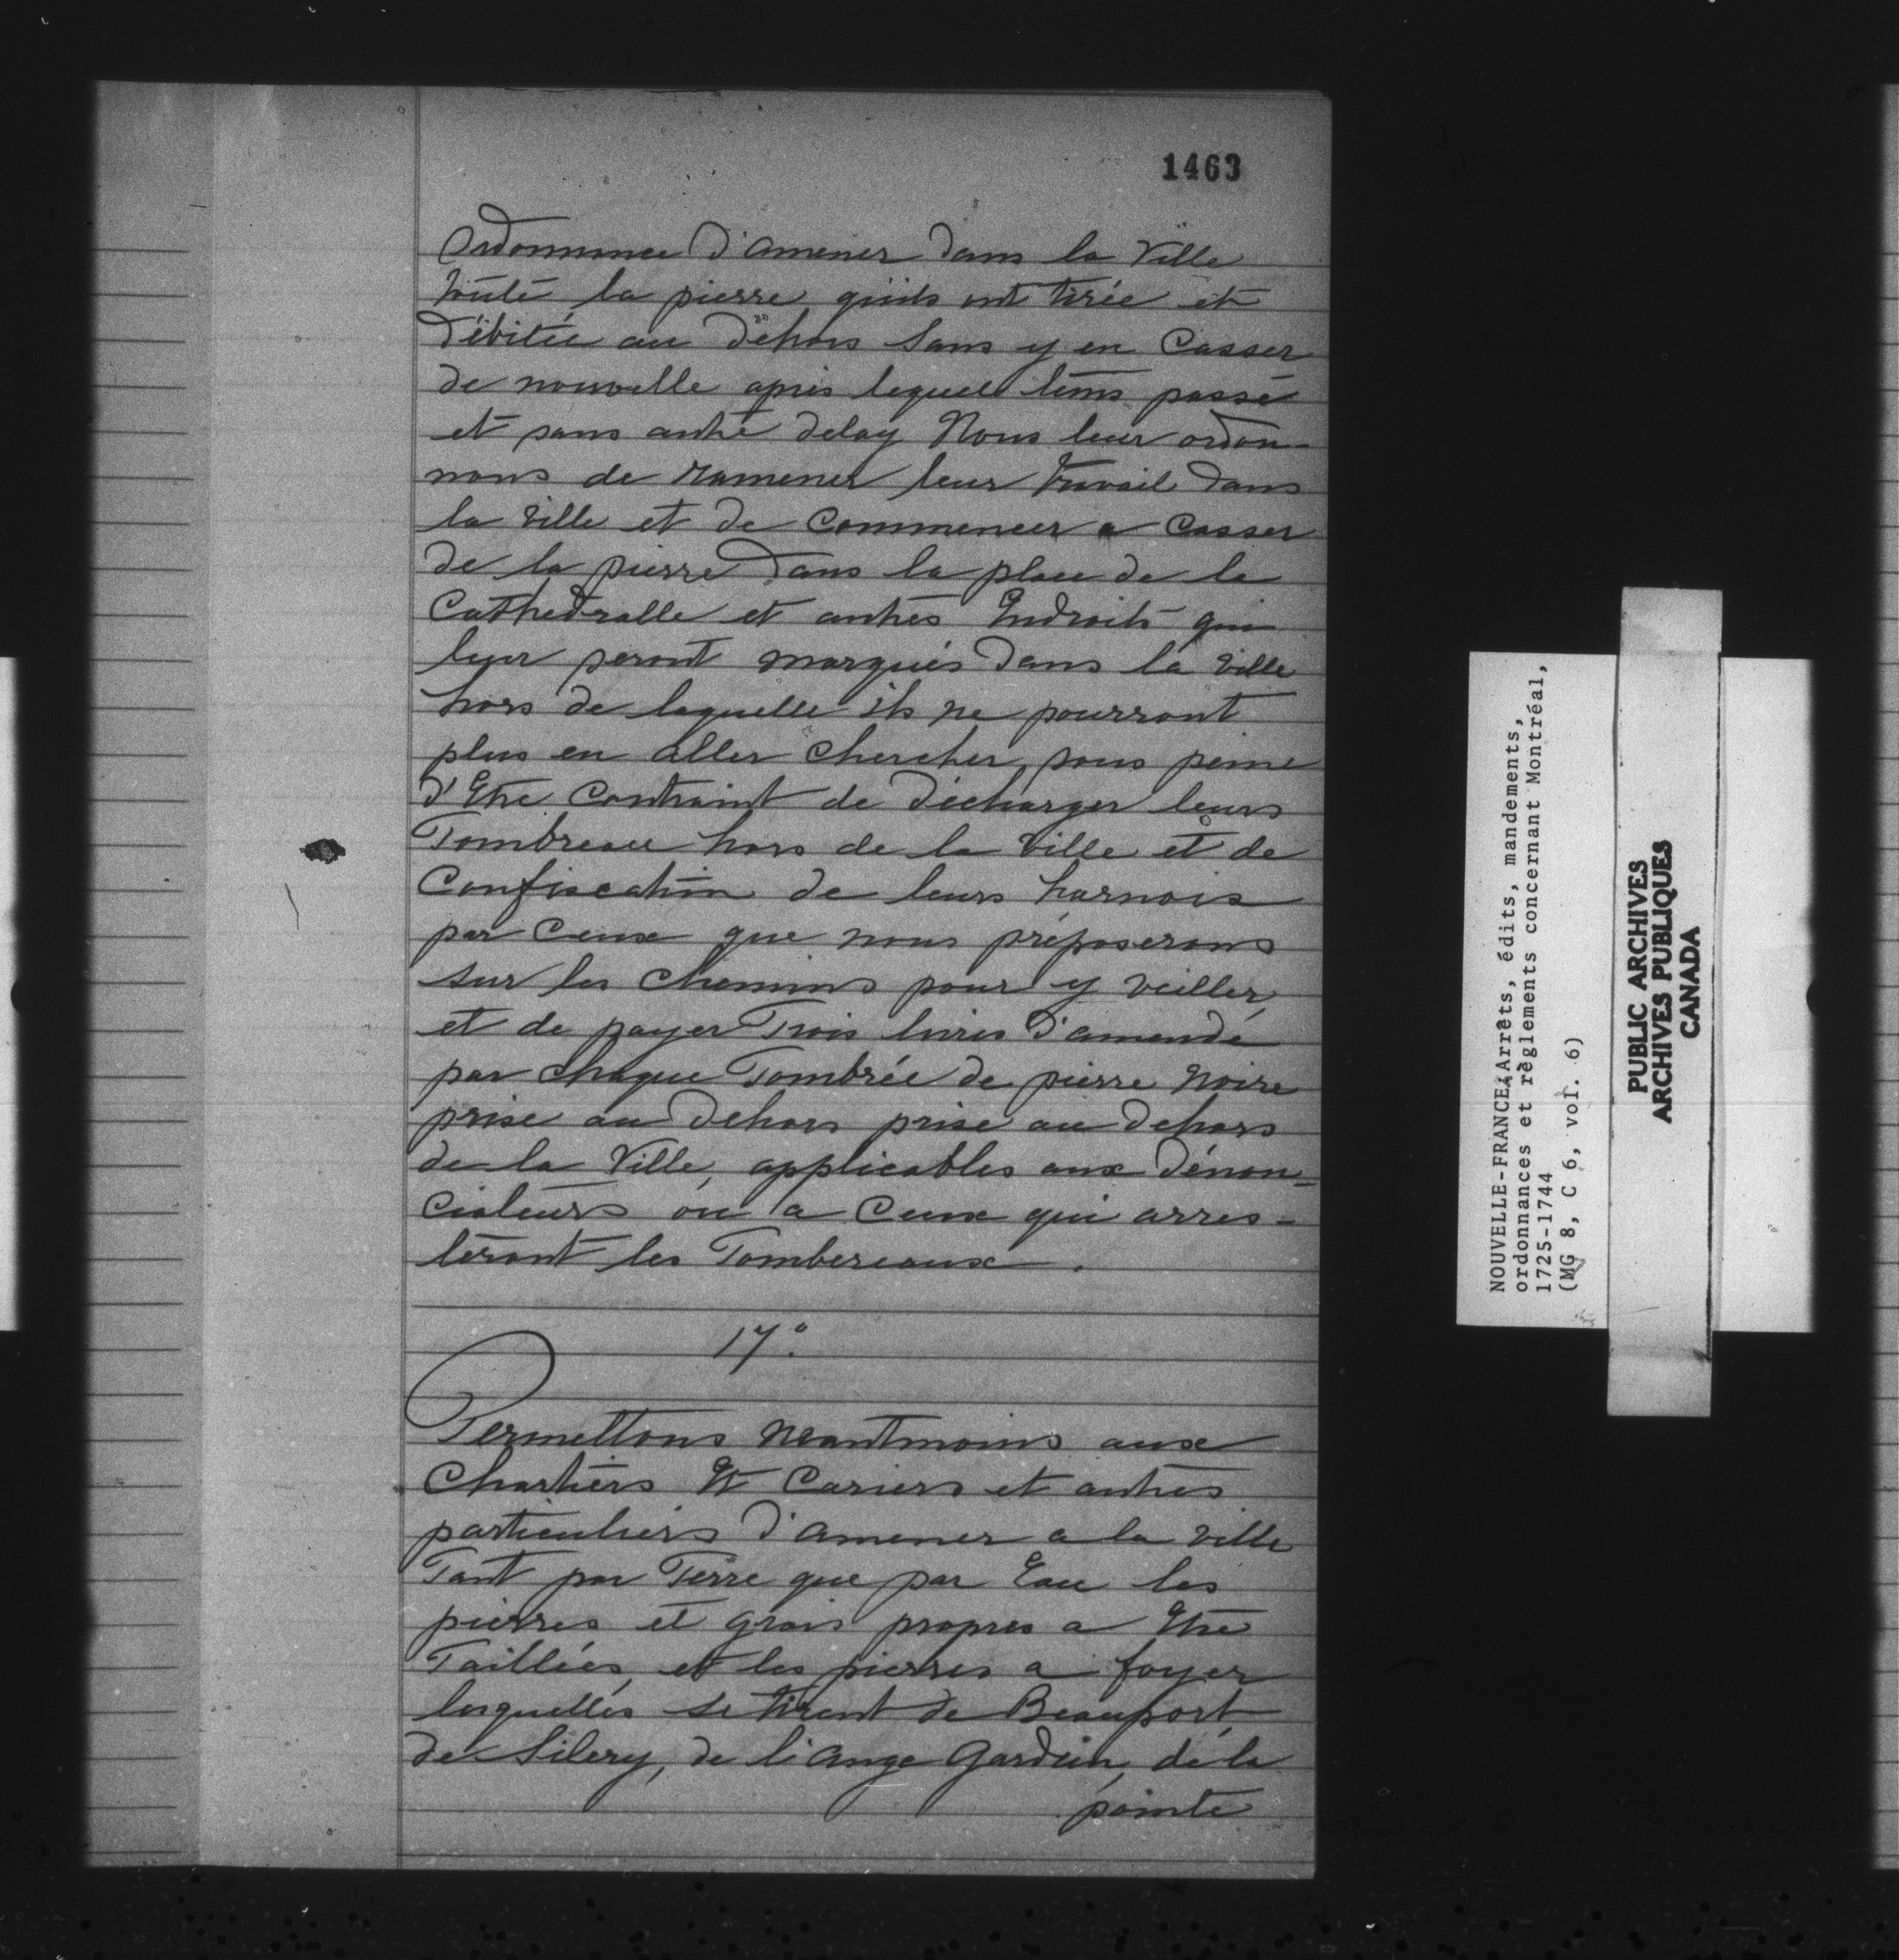 1463
Ordonnance d'amener dans la Ville
toute la pierre quils ont tirée et
débitée au dehors sans y en Casser
de nouvelle après lequel tems passé
et sans autre delay Nous leur ordon-
nons de ramener leur travail dans
la ville et de Commencer a Casser
de la pierre dans la place de la
Cathedralle et autres Endroits qui
leur seront marqués dans la ville
hors de laquelle ils ne pourront
plus en aller Chercher, sous peine
d'Etre Contraint de décharger leurs
Tombreau hors de la Ville et de
Confiscation de leurs harnois
par Ceux que nous préposerons
sur les Chemins pour y veiller,
et de payer Trois livres d'amende
par Chaque Tombrée de pierre Noire
prise au dehors prise au dehors
de la Ville, applicables aux dénon-
ciateurs ou a Ceux qui arres-
teront les Tombereaux.
17°.
Permettons neantmoins aux
Chartiers Et Cariers et autres
particuliers d'amener a la ville
Tant par Terre que par Eau les
pierres et grais propres a Etre
Taillées, et les pierres a foyer
lesquelles se tirent de Beauport,
de Silery, de l'ange Gardien, de la
pointe
NOUVELLE-FRANCE. Arrêts, édits, mandements,
ordonnances et règlements concernant Montréal,
1725-1744
(MG 8, C 6, vol. 6)
PUBLIC ARCHIVES
ARCHIVES PUBLIQUES
CANADA